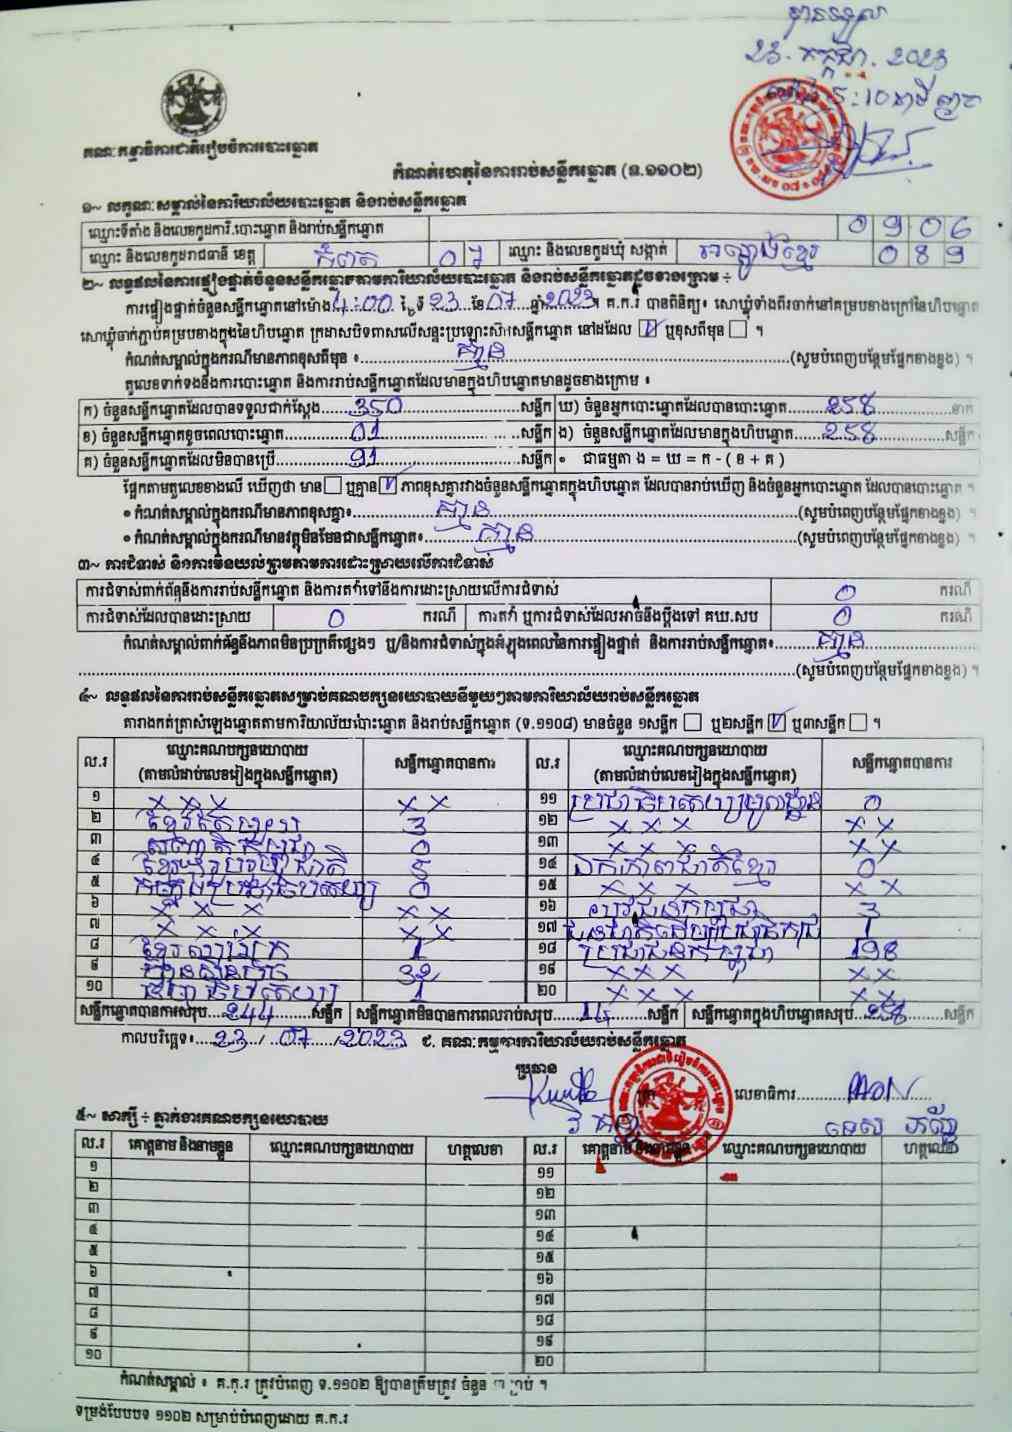 បានទទួល
23.កក្កដា.2023
ម៉ោង 5:10នាទី ល្ងាច
គណៈកម្មាធិការជាតិរៀបចំការបោះឆ្នោត
កំណត់ហេតុនៃការរាប់សន្លឹកឆ្នោត (ទ.១១០២)
១~ លក្ខណៈសម្គាល់នៃការិយាល័យបោះឆ្នោត និងរាប់សន្លឹកឆ្នោត
ឈ្មោះទីតាំង និងលេខកូដការិ.បោះឆ្នោត និងរាប់សន្លឹកឆ្នោត 0906
ឈ្មោះ និងលេខកូដរាជធានី ខេត្ត កំពត 07 ឈ្មោះ និងលេខកូដឃុំ សង្កាត់ 089
២~ លទ្ធផលនៃការផ្ទៀងផ្ទាត់ចំនួនសន្លឹកឆ្នោតតាមការិយាល័យបោះឆ្នោត និងរាប់សន្លឹកឆ្នោតដូចខាងក្រោម ÷
ការផ្ទៀងផ្ទាត់ចំនួនសន្លឹកឆ្នោតនៅម៉ោង 4:00 ថ្ងៃទី 23 ខែ 07 ឆ្នាំ 2023។ គ.ក.រ បានពិនិត្យ៖ សោឃ្លុំទាំងពីរចាក់នៅគម្របខាងក្រៅនៃហិបឆ្នោត
សោឃ្លុំចាក់ភ្ជាប់គម្របខាងក្នុងនៃហិបឆ្នោត ក្រដាសបិទពាសលើសន្ទះប្រឡោះស៊កសន្លឹកឆ្នោត នៅដដែល ☑ ឬខុសពីមុន ☐ ។
កំណត់សម្គាល់ក្នុងករណីមានភាពខុសពីមុន ៖ គ្មាន (សូមបំពេញបន្ថែមផ្នែកខាងខ្នង) ។
តួលេខទាក់ទងនឹងការបោះឆ្នោត និងការរាប់សន្លឹកឆ្នោតដែលមានក្នុងហិបឆ្នោតមានដូចខាងក្រោម ៖
ក) ចំនួនសន្លឹកឆ្នោតដែលបានទទួលជាក់ស្តែង 350 សន្លឹក ឃ) ចំនួនអ្នកបោះឆ្នោតដែលបានបោះឆ្នោត 258 នាក់
ខ) ចំនួនសន្លឹកឆ្នោតខូចពេលបោះឆ្នោត 01 សន្លឹក ង) ចំនួនសន្លឹកឆ្នោតដែលមានក្នុងហិបឆ្នោត 258 សន្លឹក
គ) ចំនួនសន្លឹកឆ្នោតដែលមិនបានប្រើ 91 សន្លឹក • ជាធម្មតា ង = ឃ = ក - ( ខ + គ )
ផ្អែកតាមតួលេខខាងលើ ឃើញថា មាន ☐ ឬគ្មាន ☑ ភាពខុសគ្នារវាងចំនួនសន្លឹកឆ្នោតក្នុងហិបឆ្នោត ដែលបានរាប់ឃើញ និងចំនួនអ្នកបោះឆ្នោត ដែលបានបោះឆ្នោត ។
• កំណត់សម្គាល់ក្នុងករណីមានភាពខុសគ្នា៖ គ្មាន (សូមបំពេញបន្ថែមផ្នែកខាងខ្នង) ។
• កំណត់សម្គាល់ក្នុងករណីមានវត្ថុមិនមែនជាសន្លឹកឆ្នោត៖ គ្មាន (សូមបំពេញបន្ថែមផ្នែកខាងខ្នង) ។
៣~ ការជំទាស់ និងការមិនយល់ព្រមតាមការដោះស្រាយលើការជំទាស់
ការជំទាស់ពាក់ព័ន្ធនឹងការរាប់សន្លឹកឆ្នោត និងការតវ៉ាទៅនឹងការដោះស្រាយលើការជំទាស់ 0 ករណី
ការជំទាស់ដែលបានដោះស្រាយ 0 ករណី ការតវ៉ា ឬការជំទាស់ដែលអាចនឹងប្តឹងទៅ គឃ.សប 0 ករណី
កំណត់សម្គាល់ពាក់ព័ន្ធនឹងភាពមិនប្រក្រតីផ្សេងៗ ឬ/និងការជំទាស់ក្នុងអំឡុងពេលនៃការផ្ទៀងផ្ទាត់ និងការរាប់សន្លឹកឆ្នោត៖ គ្មាន
(សូមបំពេញបន្ថែមផ្នែកខាងខ្នង) ។
៤~ លទ្ធផលនៃការរាប់សន្លឹកឆ្នោតសម្រាប់គណបក្សនយោបាយនីមួយៗតាមការិយាល័យរាប់សន្លឹកឆ្នោត
តារាងកត់ត្រាសំឡេងឆ្នោតតាមការិយាល័យបោះឆ្នោត និងរាប់សន្លឹកឆ្នោត (ទ.១១០៨) មានចំនួន ១សន្លឹក ☐ ឬ២សន្លឹក ☑ ឬ៣សន្លឹក ☐ ។
ល.រ ឈ្មោះគណបក្សនយោបាយ (តាមលំដាប់លេខរៀងក្នុងសន្លឹកឆ្នោត) សន្លឹកឆ្នោតបានការ ល.រ ឈ្មោះគណបក្សនយោបាយ (តាមលំដាប់លេខរៀងក្នុងសន្លឹកឆ្នោត) សន្លឹកឆ្នោតបានការ
១ x x x x x ១១ ប្រជាធិបតេយ្យមូលដ្ឋាន 0
២ ខ្មែរតែមួយ 3 ១២ x x x x x
៣ សញ្ជាតិកម្ពុជា 0 ១៣ x x x x x
៤ ខ្មែររួបរួមជាតិ 5 ១៤ ឯកភាពជាតិខ្មែរ 0
៥ 0 ១៥ x x x x x
៦ x x x x x ១៦ យុវជនកម្ពុជា 3
៧ x x x x x ១៧ 1
៨ ខ្មែរ 1 ១៨ ប្រជាជនកម្ពុជា 198
៩ ហ៊្វុនស៊ិនប៉ិច 32 ១៩ x x x x x
១០ 1 ២០ x x x x x
សន្លឹកឆ្នោតបានការសរុប 244 សន្លឹក សន្លឹកឆ្នោតមិនបានការពេលរាប់សរុប 14 សន្លឹក សន្លឹកឆ្នោតក្នុងហិបឆ្នោតសរុប 258 សន្លឹក
កាលបរិច្ឆេទ៖ 23 / 07 / 2023 ៩. គណៈកម្មការការិយាល័យរាប់សន្លឹកឆ្នោត
ប្រធាន
លេខាធិការ
៥~ សាក្សី ÷ ភ្នាក់ងារគណបក្សនយោបាយ
ល.រ គោត្តនាម និងនាមខ្លួន ឈ្មោះគណបក្សនយោបាយ ហត្ថលេខា ល.រ គោត្តនាម និងនាមខ្លួន ឈ្មោះគណបក្សនយោបាយ ហត្ថលេខា
១ ១១
២ ១២
៣ ១៣
៤ ១៤
៥ ១៥
៦ ១៦
៧ ១៧
៨ ១៨
៩ ១៩
១០ ២០
កំណត់សម្គាល់ ៖ គ.ក.រ ត្រូវបំពេញ ទ.១១០២ ឱ្យបានត្រឹមត្រូវ ចំនួន ច្បាប់ ។
ទម្រង់បែបបទ ១១០២ សម្រាប់បំពេញដោយ គ.ក.រ